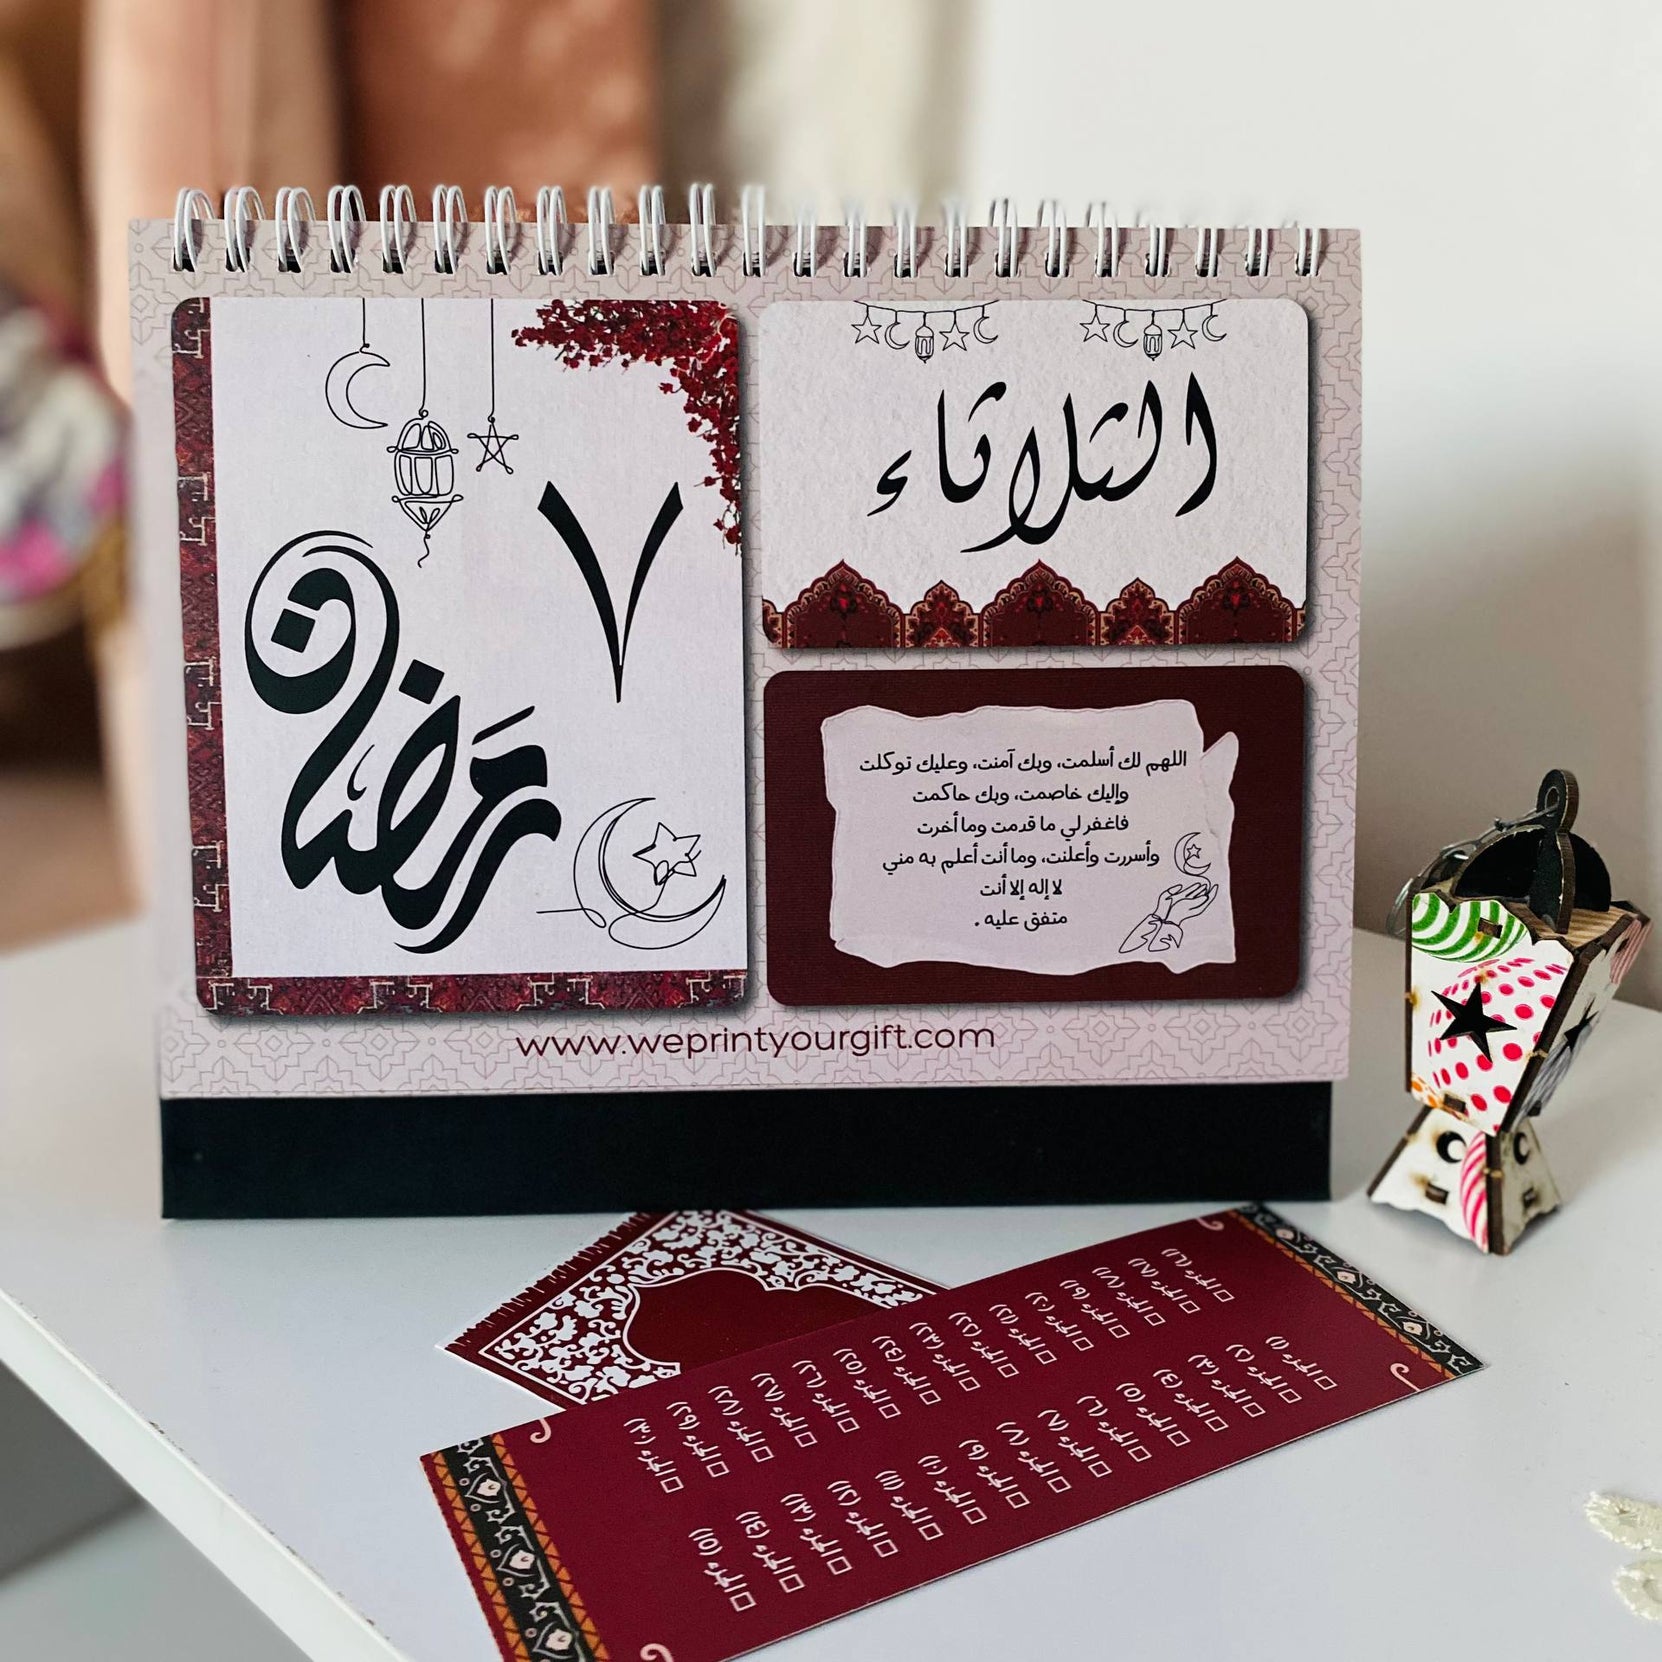 ٧
رمضان
الثلاثاء
اللهم لك أسلمت، وبك آمنت، وعليك توكلت
وإليك خاصمت، وبك حاكمت
فاغفر لي ما قدمت وما أخرت
وأسررت وأعلنت، وما أنت أعلم به مني
لا إله إلا أنت
متفق عليه .
www.weprintyourgift.com
الجزء (١)
الجزء (٢)
الجزء (٣)
الجزء (٤)
الجزء (٥)
الجزء (٦)
الجزء (٧)
الجزء (٨)
الجزء (٩)
الجزء (١٠)
الجزء (١١)
الجزء (١٢)
الجزء (١٣)
الجزء (١٤)
الجزء (١٥)
الجزء (١٦)
الجزء (١٧)
الجزء (١٨)
الجزء (١٩)
الجزء (٢٠)
الجزء (٢١)
الجزء (٢٢)
الجزء (٢٣)
الجزء (٢٤)
الجزء (٢٥)
الجزء (٢٦)
الجزء (٢٧)
الجزء (٢٨)
الجزء (٢٩)
الجزء (٣٠)